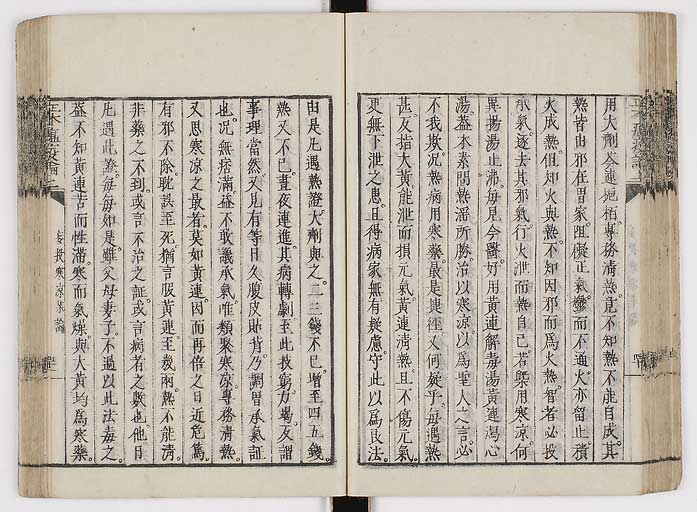 用大劑芩連梔柏專務清熱竟不知熱不能自成其
熱皆由邪在胃家阻礙正氣鬱而不通火亦留止積
火成熱但知火與熱不知因邪而為火熱智者必投
承氣逐去其邪氣行火泄而熱自已若槩用寒涼何
異揚湯止沸每見今醫好用黃連解毒湯黃連瀉心
湯葢本素問熱淫所勝治以寒涼以為聖人之言必
不我欺況熱病用寒藥最是捷徑又何疑乎每遇熱
甚反指大黃能泄而損元氣黃連清熱且不傷元氣。
更無下泄之患。且得病家無有疑慮守此以為良法。
由是凡遇熱證大劑與之二三錢不已增至四五錢。
熱又不已晝夜連進其病轉劇至此技窮力竭反謂
事理當然又見有等日久腹皮貼背乃調胃承氣証
也況無痞滿益不敢議承氣唯類聚寒涼專務清熱。
又思寒涼之最者莫如黃連因而再倍之日近危篤
有邪不除耽誤至死猶言服黃連至幾兩熱不能清
非藥之不到或言不治之証或言病者之數也他日
凡遇此證每每如是雖父母妻子不過以此法毒之。
葢不知黃連苦而性滯寒而氣燥與大黃均為寒藥。
妄投寒涼藥論